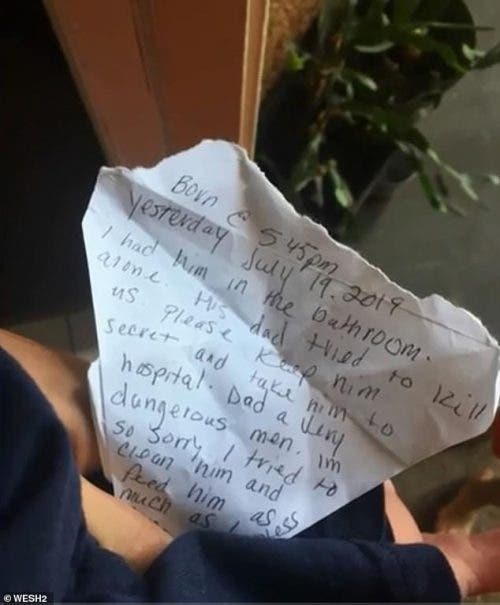 Born @ 5:45pm
Yesterday July 19. 2019
I had him in the bathroom.
alone. His dad tried to kill
us. Please keep him
secret and take him to
hospital. Dad a very
dangerous man. im
so sorry, I tried to
clean him and
feed him as
much as I
© WESH2